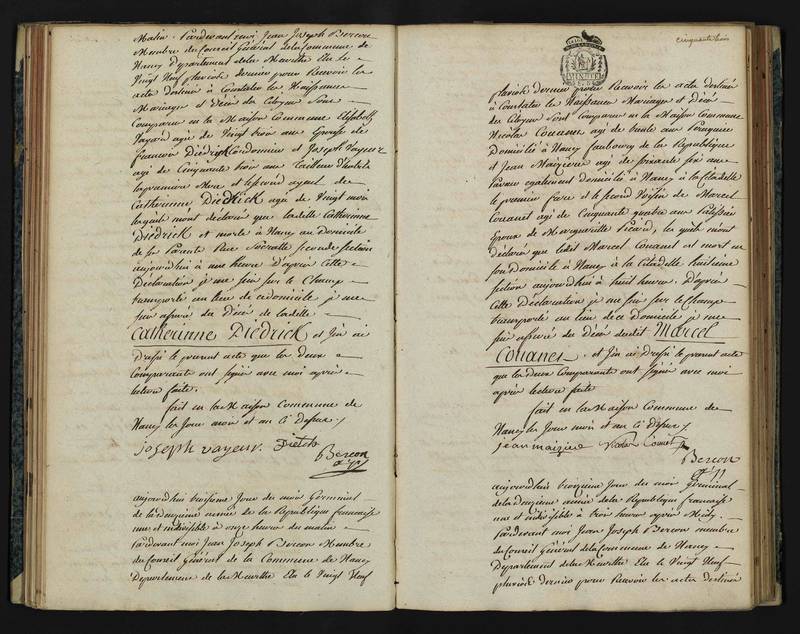 Matin. Pardevant moi Jean Joseph Bercon
Membre du Conseil Général de la Commune de
Nancy Département de la Meurthe Elu le
Vingt Neuf pluviôse dernier pour Recevoir les
acte destiné à Constater les Naissance
Mariage et Décès des Citoyen Sont
Comparu en la Maison Commune Elisabeth
agée de Vingt trois ans Epouse de
françois Diedrick Cordonnier et Joseph Vayeur
agé de Cinquante trois ans tailleur d'habits
la premiere Mere et le second ayeul de
Catherinne Diedrick agée de Vingt mois
lesquels mont déclaré que ladelle Catherinne
Diedrick et morte à Nancy au Domicile
de ses Parents Rue seconde section
aujourdhui à une heure D'apres Cette
Déclaration je me suis sur le Champ
transporté au lieu de ce domicile je me
suis assuré du Décès de ladelle
Catherinne Diedrick et J'en ai
Dressé le present acte que les deux
Comparants ont signés avec moi après
lecture faite.
fait en la Maison Commune de
Nancy les Jour mois et an ci dessus
joseph vayeur. Dietch
Bercon
off. p.
aujourdhui troisieme Jour du mois Germinal
de la deuxieme année de la Republique française
une et indivisible à onze heures du matin
Pardevant moi Jean Joseph Bercon Membre
du Conseil Général de la Commune de Nancy
Département de la Meurthe Elu le Vingt Neuf
cinquante trois
pluviôse dernier pour Recevoir les acte destiné
à Constater les Naissance Mariage et Décès
des Citoyen Sont Comparu en la Maison Commune
Nicolas Couanet agé de trente ans Perruquier
Domicilié à Nancy faubourg de la Republique
et Jean Maizière agé de soixante six ans
également Domicilié à Nancy à la Citadelle
le premier frere et le second Voisin de Marcel
Couanet agé de Cinquante quatre ans Patissier
Epoux de Marguerithe Picard, les quels mont
déclaré que ledit Marcel Couanet est mort en
son Domicile à Nancy à la Citadelle huitieme
section aujourdhui à huit heures. D'après
Cette Déclaration je me suis sur le Champ
transporté au lieu de ce Domicile je me
suis assuré du Décès dudit Marcel
Couanet. et J'en ai Dressé le present acte
que les deux Comparants ont signés avec moi
après lecture faite
fait en la Maison Commune de
Nancy les Jour mois et an ci dessus
jean maizière Nicolas Couanet
Bercon
off. p.
aujourdhui troisieme Jour du mois Germinal
de la deuxieme année de la Republique francaise
une et indivisible à trois heures après Midy.
Pardevant moi Jean Joseph Bercon membre
du Conseil Général de la Commune de Nancy
Département de la Meurthe Elu le Vingt Neuf
pluviôse dernier pour Recevoir les acte destiné